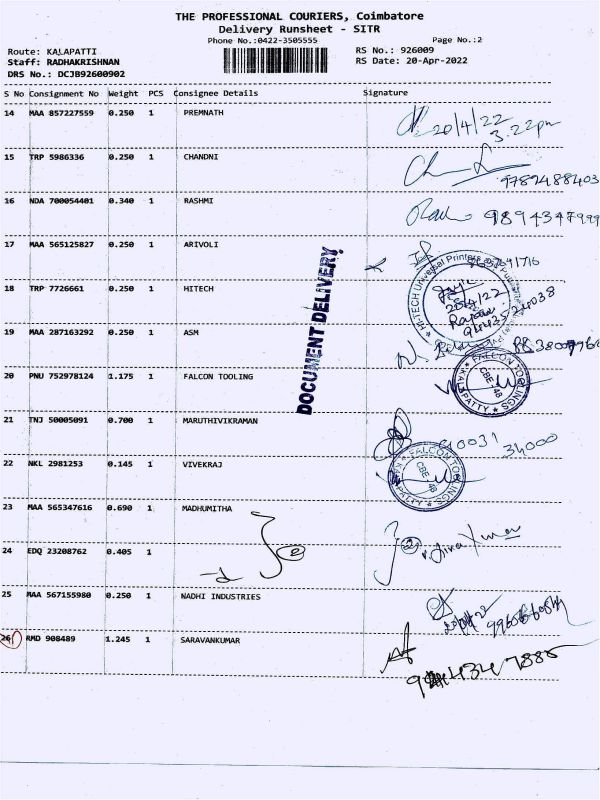 THE PROFESSIONAL COURIERS, Coimbatore
Delivery Runsheet - SITR
Phone No.:0422-3505555 Page No.:2
Route: KALAPATTI RS No.: 926009
Staff: RADHAKRISHNAN RS Date: 20-Apr-2022
DRS No.: DCJB92600902
S No Consignment No Weight PCS Consignee Details Signature
14 MAA 857227559 0.250 1 PREMNATH
20/4/22
3.22pm
15 TRP 5986336 0.250 1 CHANDNI
9789488403
16 NDA 700054401 0.340 1 RASHMI
9894347999
17 MAA 565125827 0.250 1 ARIVOLI
DOCUMENT DELIVERY
18 TRP 7726661 0.250 1 HITECH
HI-TECH Universal Printers
19 MAA 287163292 0.250 1 ASM
20 PNU 752978124 1.175 1 FALCON TOOLING
FALCON TOOLINGS
CBE - 48
KALAPATTY
21 TNJ 50005091 0.700 1 MARUTHIVIKRAMAN
34000
22 NKL 2981253 0.145 1 VIVEKRAJ
FALCON TOOLINGS
CBE - 48
KALAPATTY
23 MAA 565347616 0.690 1 MADHUMITHA
24 EDQ 23208762 0.405 1
2
2
25 MAA 567155980 0.250 1 NADHI INDUSTRIES
26 RMD 908489 1.245 1 SARAVANKUMAR